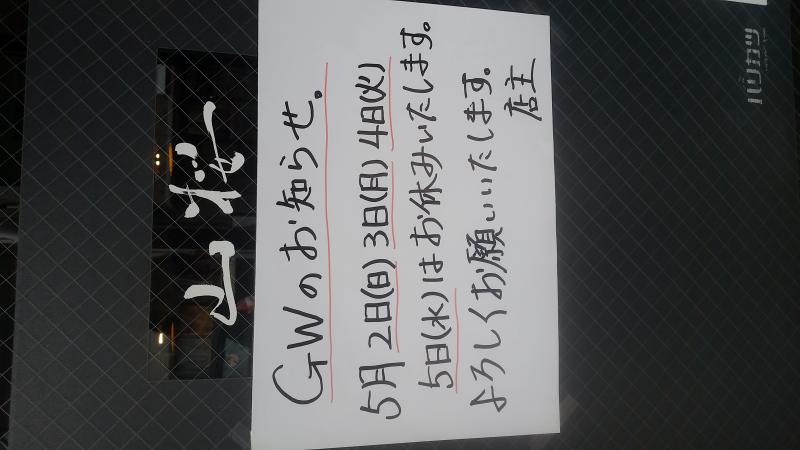 山桜
GWのお知らせ。
5月2日(日)3日(月)4日(火)
5日(水)はお休みいたします。
よろしくお願いいたします。
店主